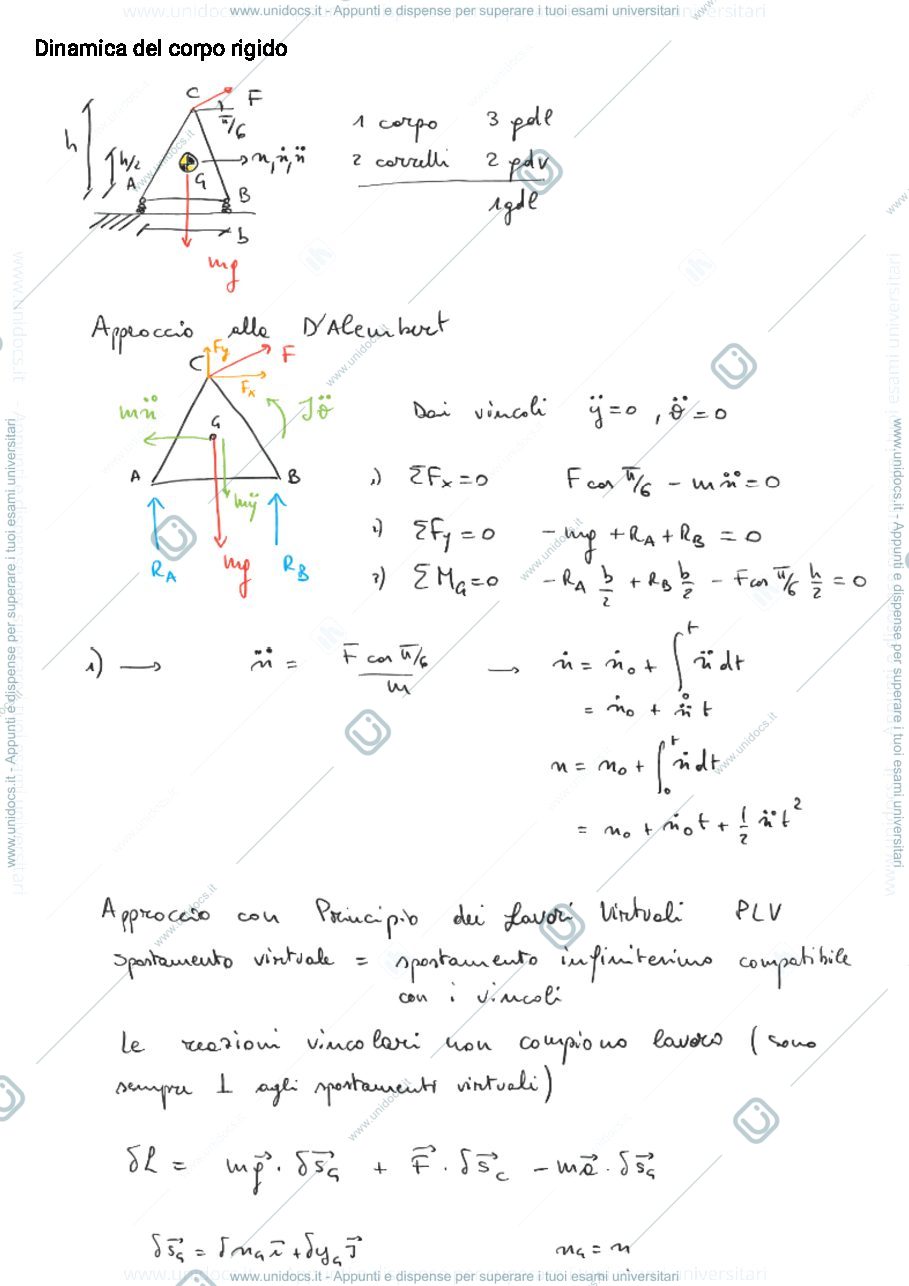 www.unidocs.it - Appunti e dispense per superare i tuoi esami universitari
Dinamica del corpo rigido
C F
π/6
h h/2 A G x, ẋ, ẍ B
b
mg
1 corpo 3 gdl
2 carrelli 2 gdv
1 gdl
Approccio alla D'Alembert
C Fy F
Fx
mẍ G Jθ̈
A B
mÿ
RA mg RB
Dai vincoli ÿ=0 , θ̈=0
1) ΣFx=0 F cos π/6 - mẍ=0
2) ΣFy=0 -mg + RA + RB = 0
3) ΣMG=0 -RA b/2 + RB b/2 - F cos π/6 h/2 = 0
1) → ẍ = F cos π/6 / m → ẋ = ẋ0 + ∫0^t ẍ dt
= ẋ0 + ẍ t
x = x0 + ∫0^t ẋ dt
= x0 + ẋ0 t + 1/2 ẍ t²
Approccio con Principio dei Lavori Virtuali PLV
Spostamento virtuale = spostamento infinitesimo compatibile
con i vincoli
Le reazioni vincolari non compiono lavoro (sono
sempre ⊥ agli spostamenti virtuali)
δL = mg⃗ · δs⃗G + F⃗ · δs⃗C - ma⃗ · δs⃗G
δs⃗G = δxG i⃗ + δyG j⃗ xG = x
www.unidocs.it - Appunti e dispense per superare i tuoi esami universitari